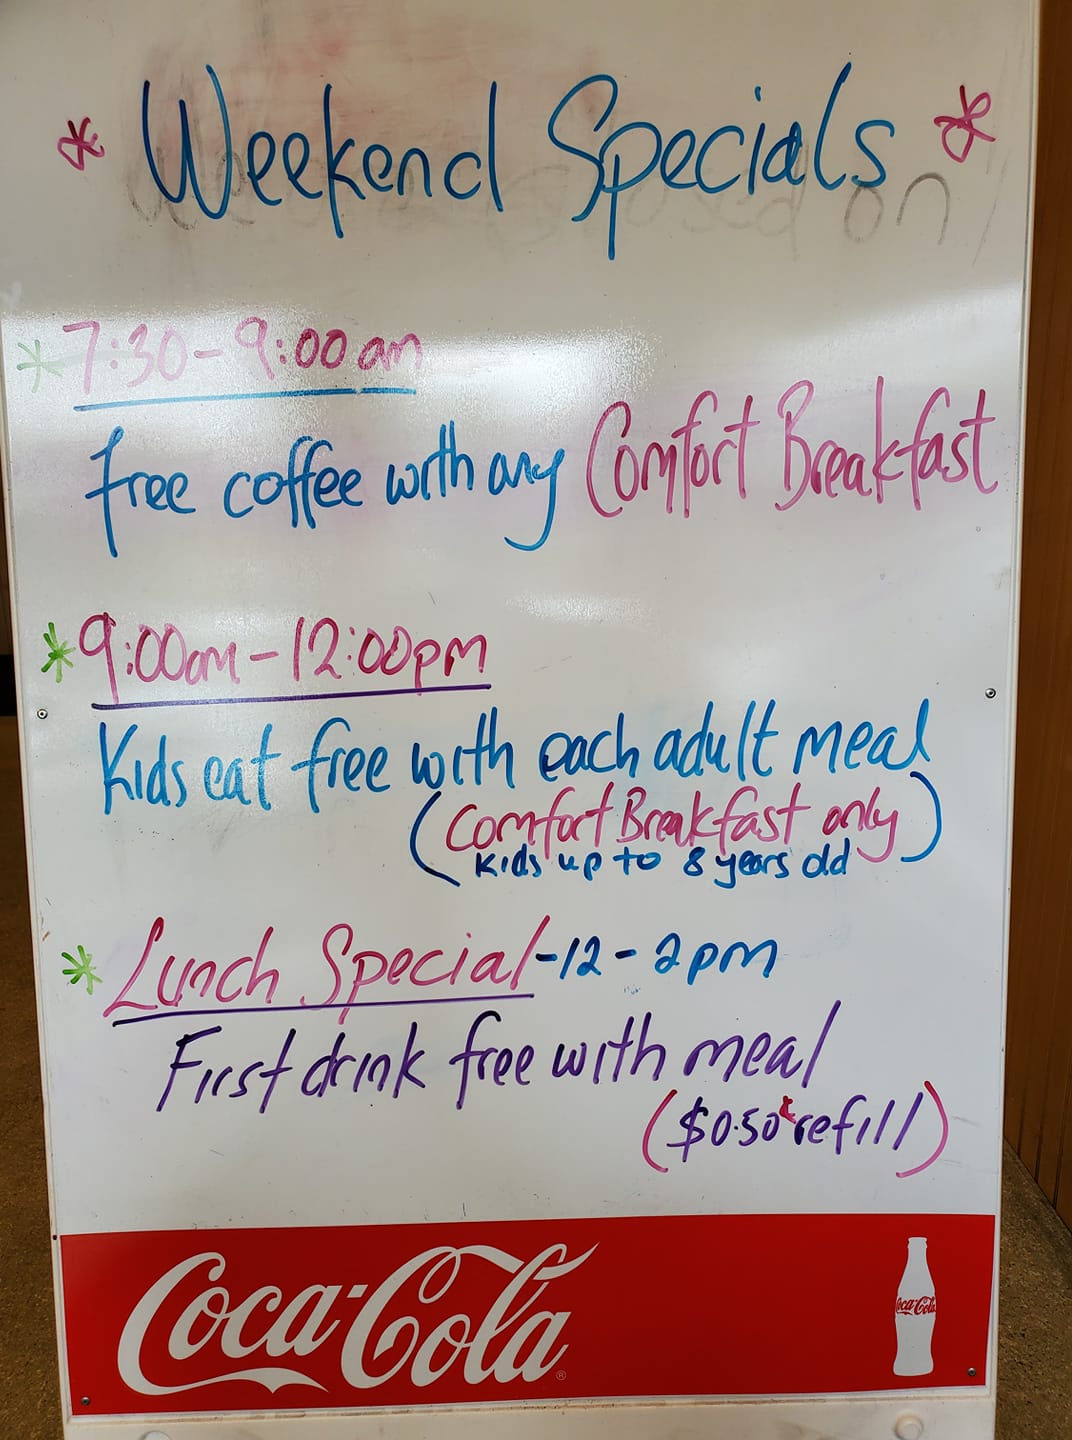 * Weekend Specials *
* 7:30 - 9:00 am
free coffee with any Comfort Breakfast
* 9:00am - 12:00pm
Kids eat free with each adult meal
(Comfort Breakfast only)
Kids up to 8 years old
* Lunch Special - 12 - 2pm
First drink free with meal
($0.50¢ refill)
Coca-Cola®
Coca-Cola